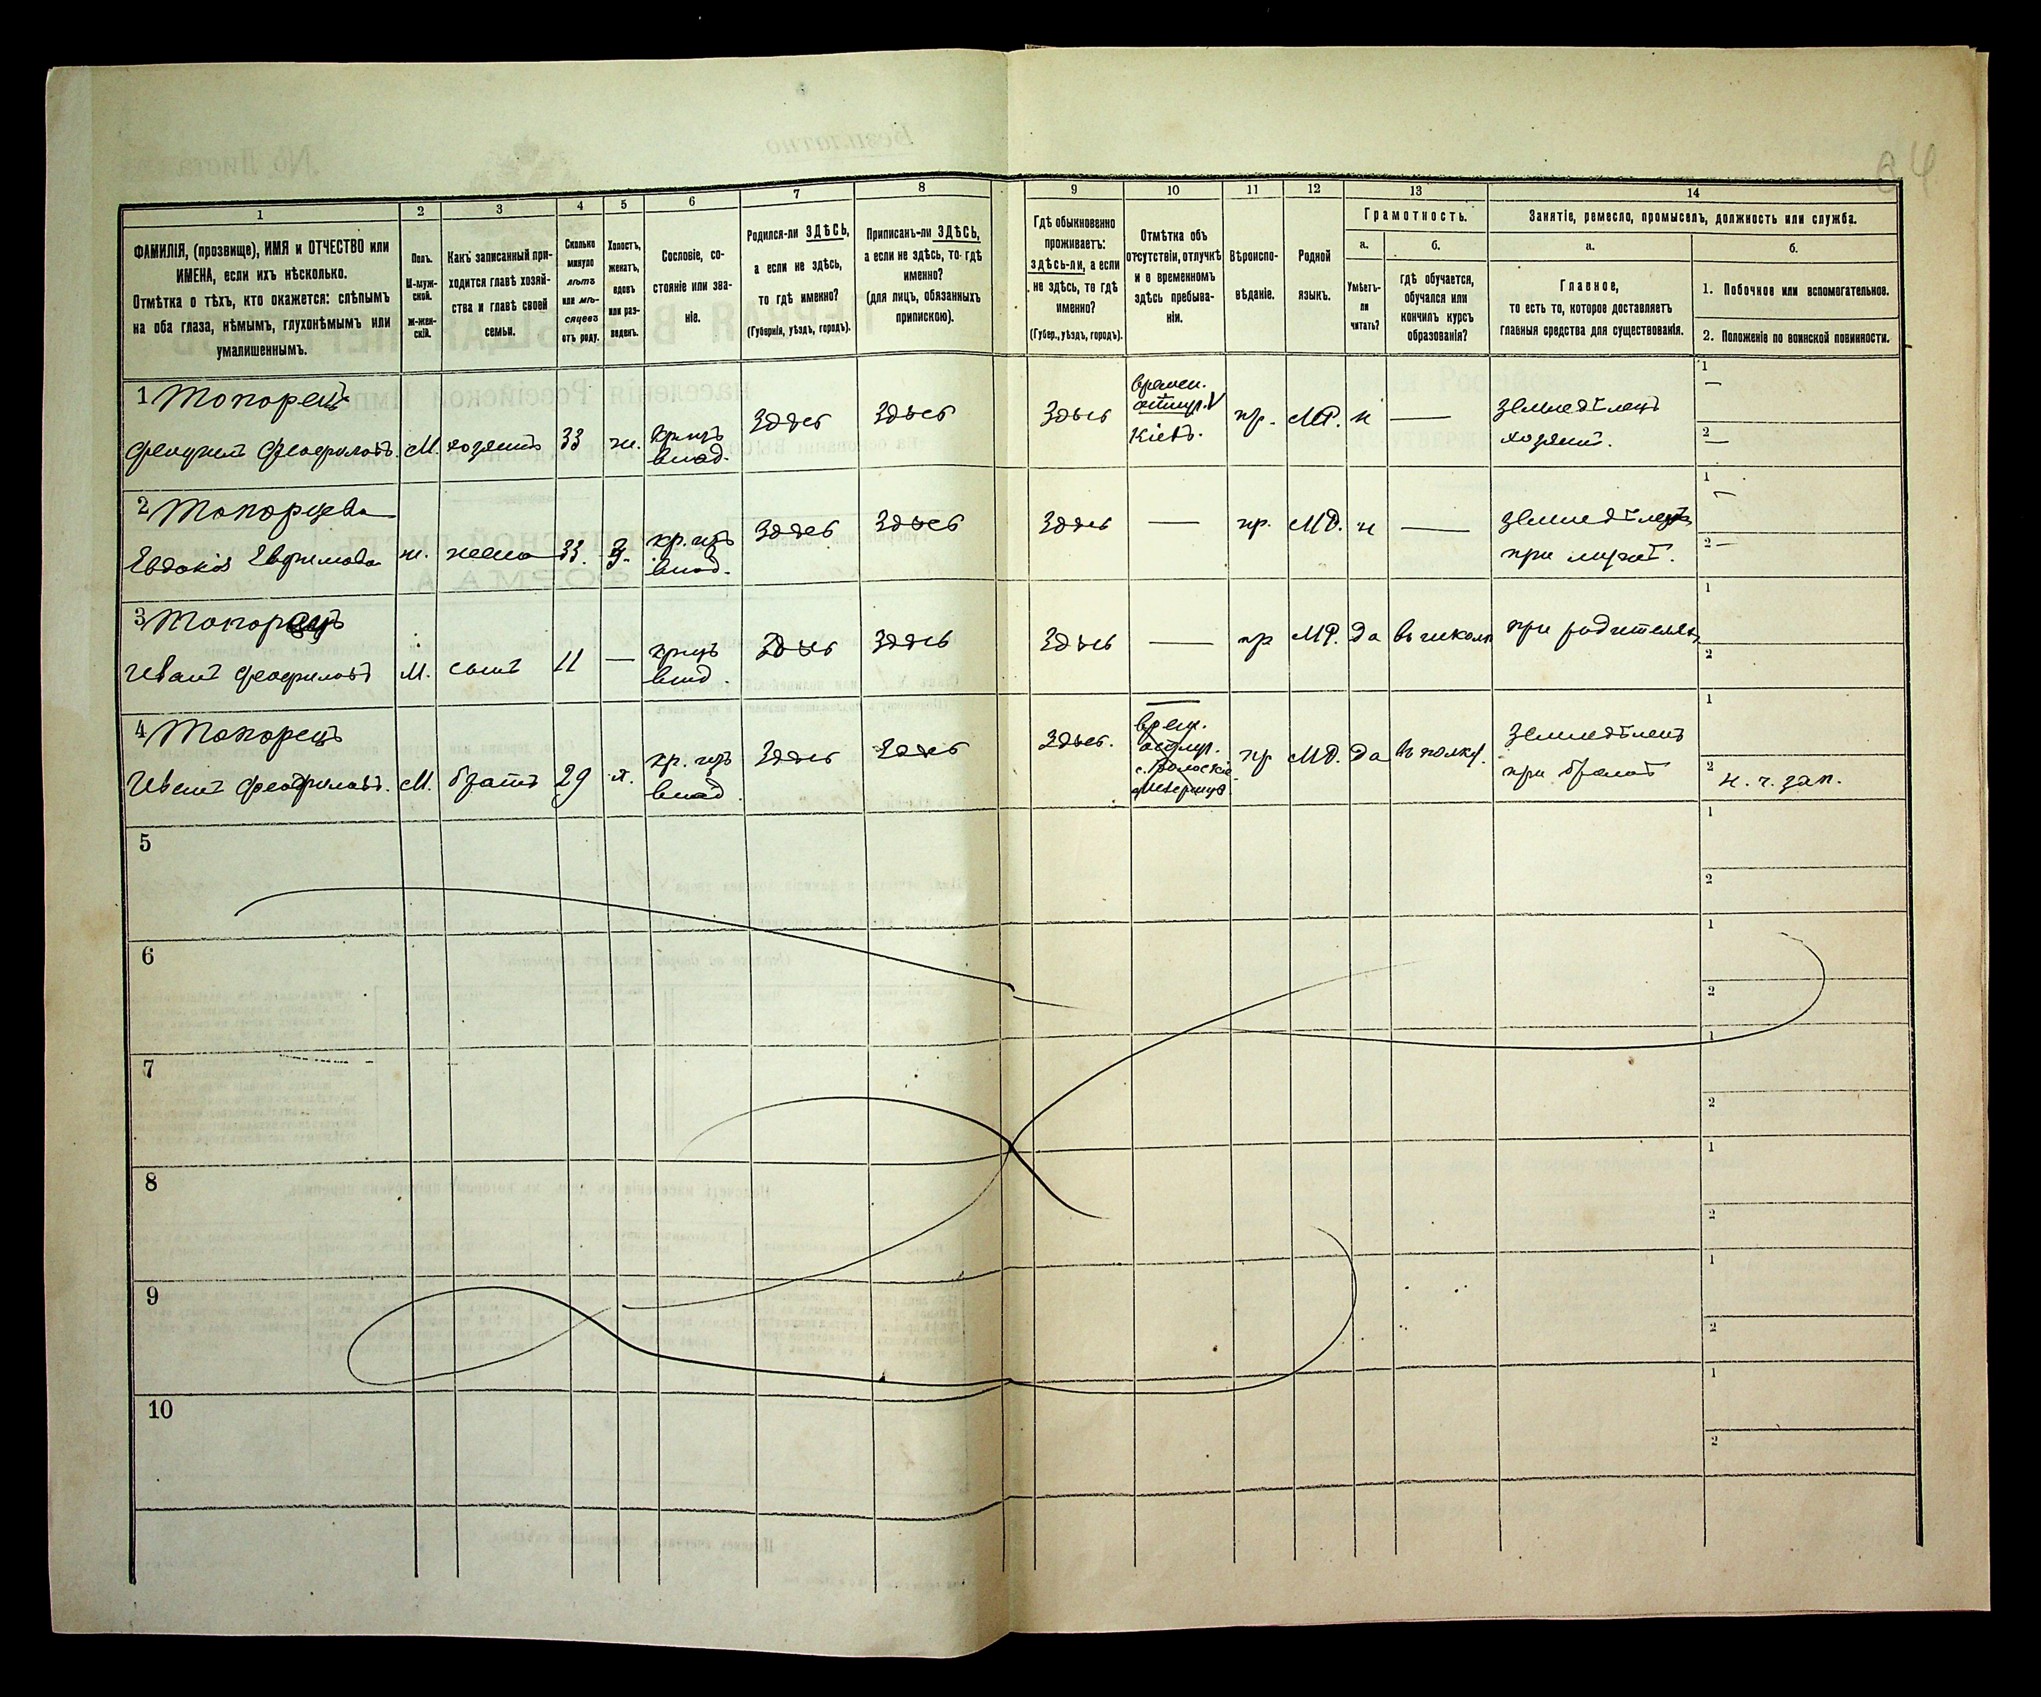 84
1
2
3
4
5
6
7
8
9
10
11
12
13
14
ФАМИЛІЯ, (прозвище), ИМЯ и ОТЧЕСТВО или
ИМЕНА, если ихъ нѣсколько.
Отмѣтка о тѣхъ, кто окажется: слѣпымъ
на оба глаза, нѣмымъ, глухонѣмымъ или
умалишеннымъ.
Полъ.
М-муж-
ской.
Ж-жен-
скій.
Какъ записанный при-
ходится главѣ хозяй-
ства и главѣ своей
семьи.
Сколько
минуло
лѣтъ
или мѣ-
сяцевъ
отъ роду.
Холостъ,
женатъ,
вдовъ
или раз-
веденъ.
Сословіе, со-
стояніе или зва-
ніе.
Родился-ли ЗДѢСЬ,
а если не здѣсь,
то гдѣ именно?
(Губернія, уѣздъ, городъ).
Приписанъ-ли ЗДѢСЬ,
а если не здѣсь, то гдѣ
именно?
(для лицъ, обязанныхъ
припискою).
Гдѣ обыкновенно
проживаетъ:
здѣсь-ли, а если
не здѣсь, то гдѣ
именно?
(Губер., уѣздъ, городъ).
Отмѣтка объ
отсутствіи, отлучкѣ
и о временномъ
здѣсь пребыва-
ніи.
Вѣроиспо-
вѣданіе.
Родной
языкъ.
Грамотность.
а.
Умѣетъ-
ли
читать?
б.
Гдѣ обучается,
обучался или
кончилъ курсъ
образованія?
Занятіе, ремесло, промыселъ, должность или служба.
а.
Главное,
то есть то, которое доставляетъ
главныя средства для существованія.
б.
1. Побочное или вспомогательное.
2. Положеніе по воинской повинности.
1 Топорецъ
Феофиловъ. М. хозяинъ 33 ж. кр. изъ
влад.
Здѣсь Здѣсь Здѣсь
времен.
отлуч. V
Кіевъ.
пр. МР. н —
земледѣлецъ
хозяинъ.
1 —
2 —
2 Топорцева
Евдокія Ефимова ж. жена 33. З. кр. изъ
влад.
Здѣсь Здѣсь Здѣсь — пр. МР. н —
земледѣлецъ
при мужѣ.
1 —
2 —
3 Топорецъ
Иванъ Феофиловъ М. сынъ 11 — кр. изъ
влад.
Здѣсь Здѣсь Здѣсь — пр МР. да въ школѣ при родителяхъ
1
2
4 Топорецъ
Иванъ Феофиловъ. М. братъ 29 х. кр. изъ
влад.
Здѣсь Здѣсь Здѣсь.
врем.
отлуч.
пр МР. да въ полку.
земледѣлецъ
при братѣ
1
2 н. ч. зап.
5
1
2
6
1
2
7
1
2
8
1
2
9
1
2
10
1
2